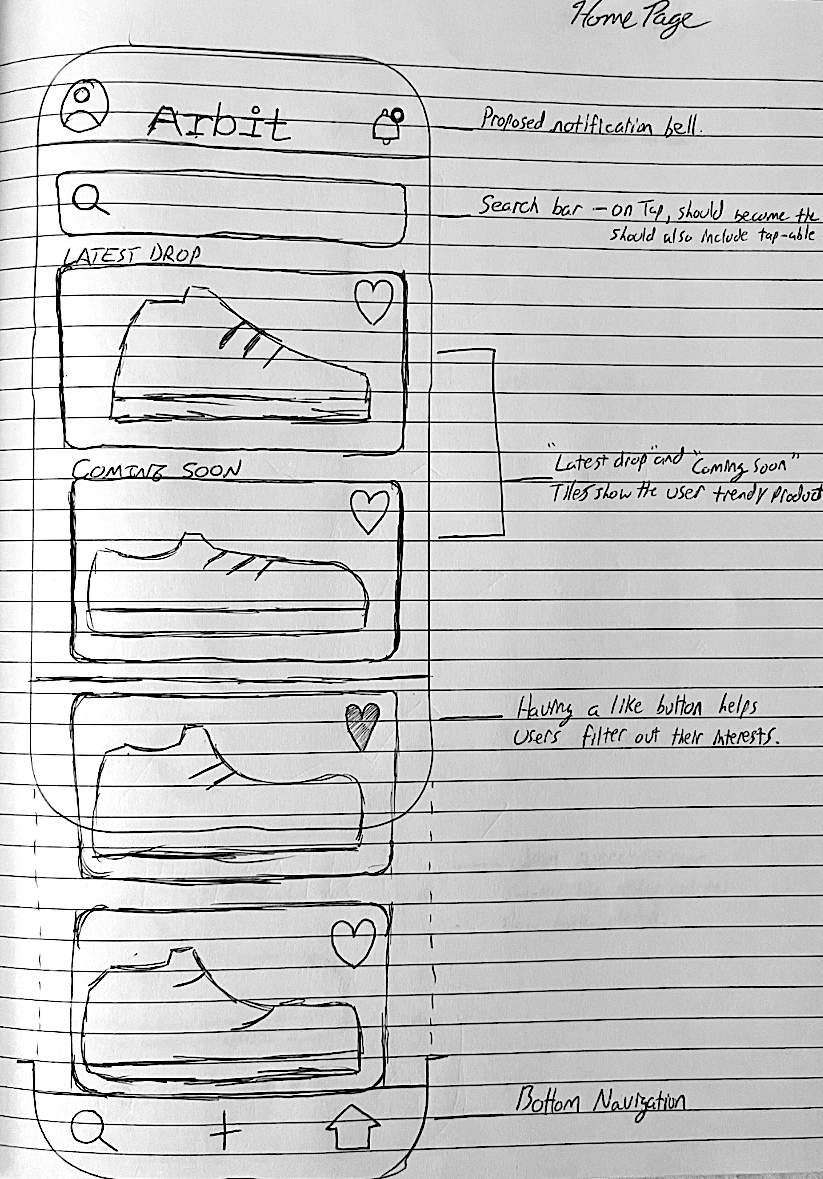 Home Page
Arbit
Proposed notification bell.
Search bar – on Tap, should become the
should also include tap-able
LATEST DROP
"Latest drop" and "Coming soon"
Tiles show the user trendy product
COMING SOON
Having a like button helps
users filter out their interests.
Bottom Navigation